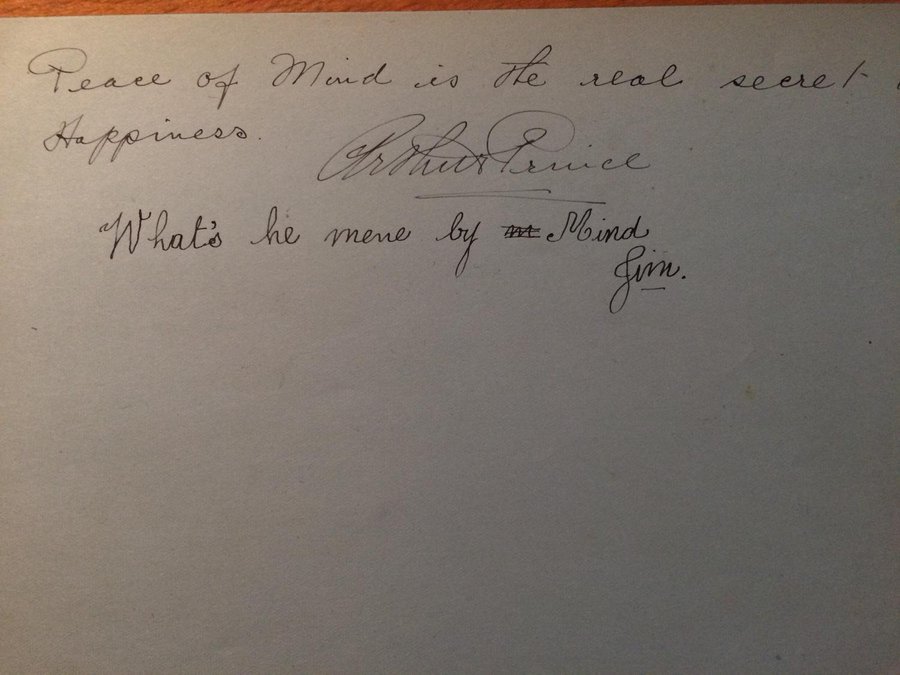 Peace of Mind is the real secret
Happiness.
Arthur Prince
What's he mene by m Mind
Jim.